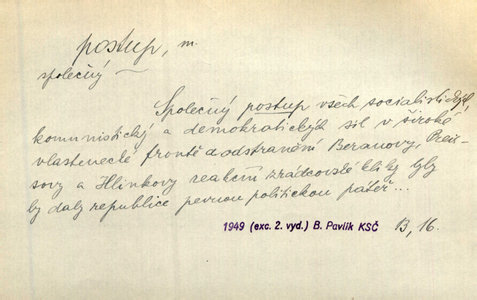 postup, m.
společný ~
Společný postup všech socialistických,
komunistických a demokratických sil v široké
vlastenecké frontě a odstranění Beranovy, Prei-
sovy a Hlinkovy reakční zrádcovské kliky byly
by daly republice pevnou politickou páteř...
1949 (exc. 2. vyd.) B. Pavlík KSČ B, 16.